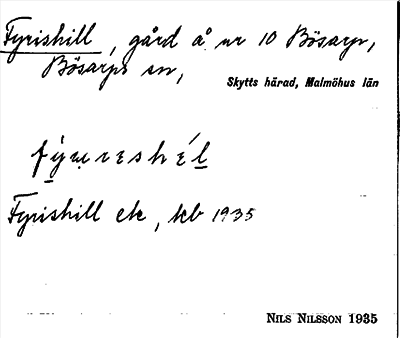 Fyrishill, gård å nr 10 Bösarp,
Bösarps sn,
Skytts härad, Malmöhus län
Fyrishill ek, kb 1935
NILS NILSSON 1935